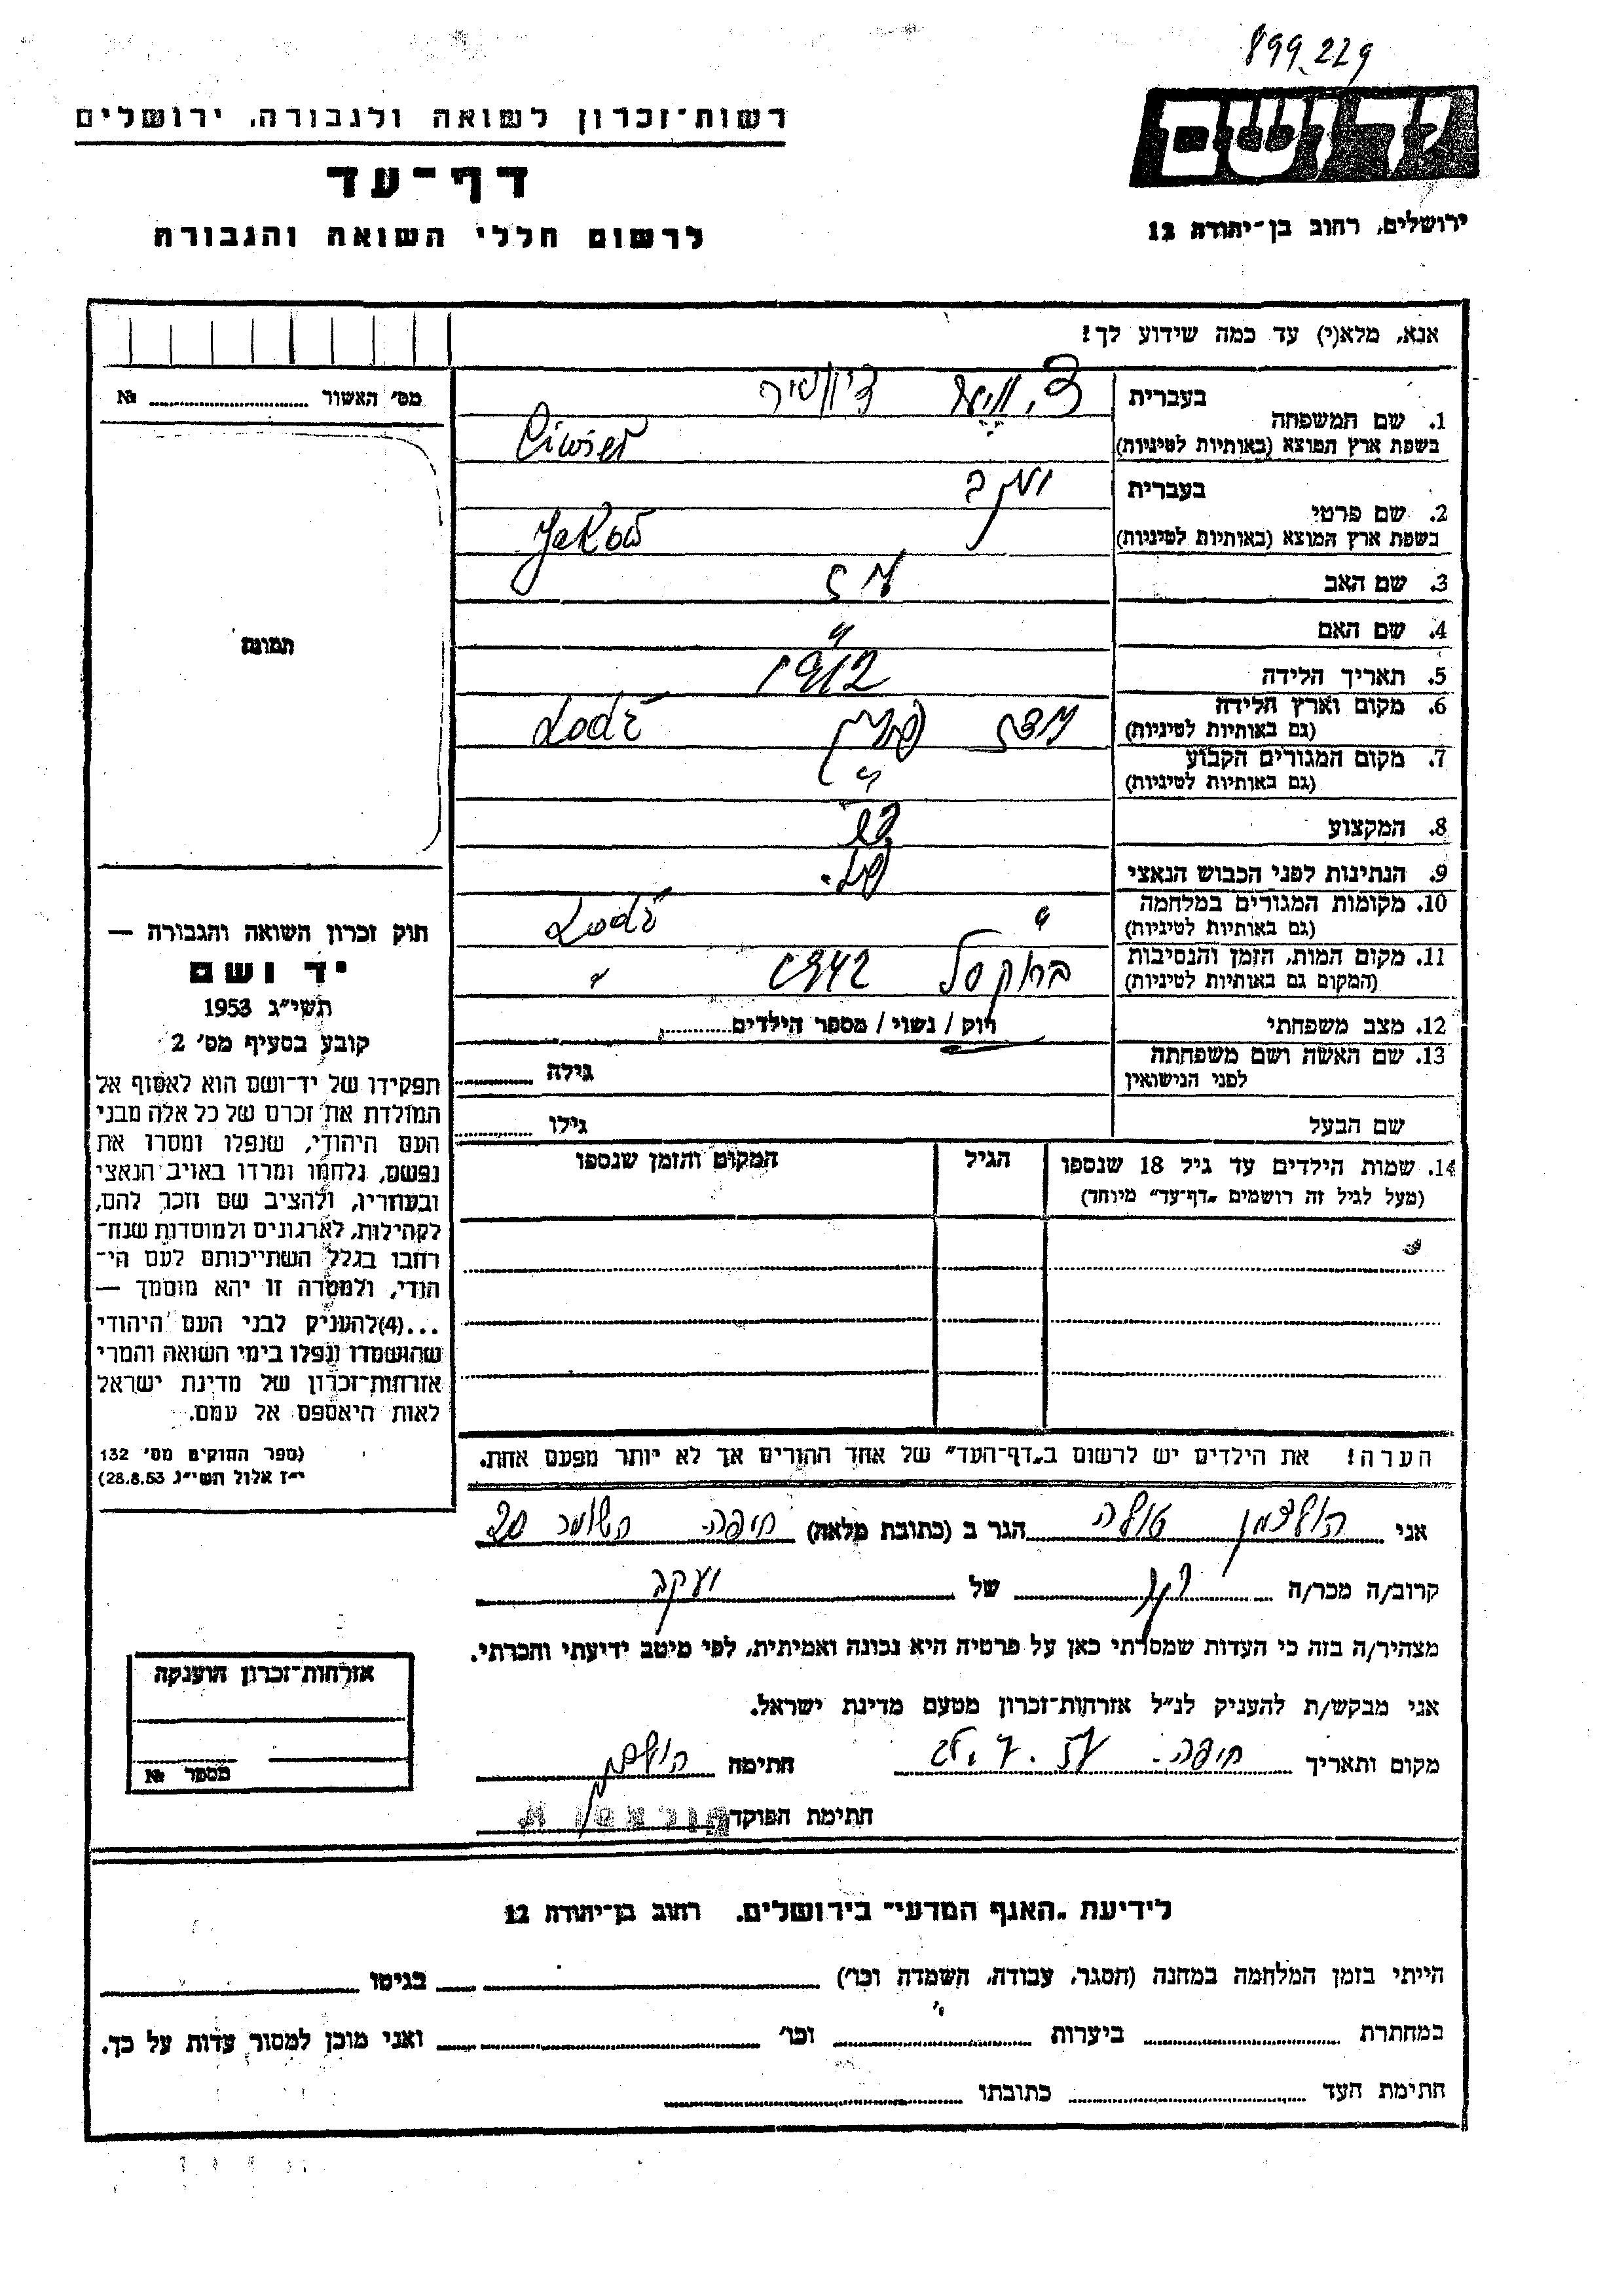 899.229
יד ושם
רשות־זכרון לשואה ולגבורה, ירושלים
דף־עד
לרשום חללי השואה והגבורה
ירושלים, רחוב בן־יהודה 12
אנא, מלא(י) עד כמה שידוע לך!
מס' האשור № 
1. שם המשפחה
בעברית
בשפת ארץ המוצא (באותיות לטיניות)
2. שם פרטי
בעברית יעקב
בשפת ארץ המוצא (באותיות לטיניות) Jakob
3. שם האב
4. שם האם "
5. תאריך הלידה 1912
6. מקום וארץ הלידה
(גם באותיות לטיניות) לודז פולין Lodź
7. מקום המגורים הקבוע
(גם באותיות לטיניות) "
8. המקצוע
9. הנתינות לפני הכבוש הנאצי פול.
10. מקומות המגורים במלחמה
(גם באותיות לטיניות) " Lodź
11. מקום המות, הזמן והנסיבות
(המקום גם באותיות לטיניות) 1942 "
12. מצב משפחתי רוק / נשוי / מספר הילדים
13. שם האשה ושם משפחתה
לפני הנישואין גילה
שם הבעל גילו
14. שמות הילדים עד גיל 18 שנספו הגיל המקום והזמן שנספו
(מעל לגיל זה רושמים „דף־עד" מיוחד)
תמונה
חוק זכרון השואה והגבורה —
יד ושם
תשי"ג 1953
קובע בסעיף מס' 2
תפקידו של יד־ושם הוא לאסוף אל
המולדת את זכרם של כל אלה מבני
העם היהודי, שנפלו ומסרו את
נפשם, נלחמו ומרדו באויב הנאצי
ובעוזריו, ולהציב שם וזכר להם,
לקהילות, לארגונים ולמוסדות שנח־
רבו בגלל השתייכותם לעם הי־
הודי, ולמטרה זו יהא מוסמך —
...(4)להעניק לבני העם היהודי
שהושמדו ונפלו בימי השואה והמרי
אזרחות־זכרון של מדינת ישראל
לאות היאספם אל עמם.
(ספר החוקים מס' 132
י"ז אלול תשי"ג 28.8.53)
הערה! את הילדים יש לרשום ב„דף־העד" של אחד ההורים אך לא יותר מפעם אחת.
אני הולצמן טולה הגר ב (כתובת מלאה) חיפה. השומר 20
קרוב/ה מכר/ה של יעקב
מצהיר/ה בזה כי העדות שמסרתי כאן על פרטיה היא נכונה ואמיתית, לפי מיטב ידיעתי והכרתי.
אני מבקש/ת להעניק לנ"ל אזרחות־זכרון מטעם מדינת ישראל.
מקום ותאריך חיפה. חתימה
חתימת הפוקד
אזרחות־זכרון הוענקה
מספר №
לידיעת „האגף המדעי" בירושלים, רחוב בן־יהודה 12
הייתי בזמן המלחמה במחנה (הסגר, עבודה, השמדה וכו') בגיטו
במחתרת ביערות וכו' ואני מוכן למסור עדות על כך.
חתימת העד כתובתו